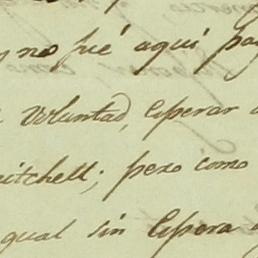 y no fué aquí pa
voluntad, esperar
itchell; pero como
qual sin espera